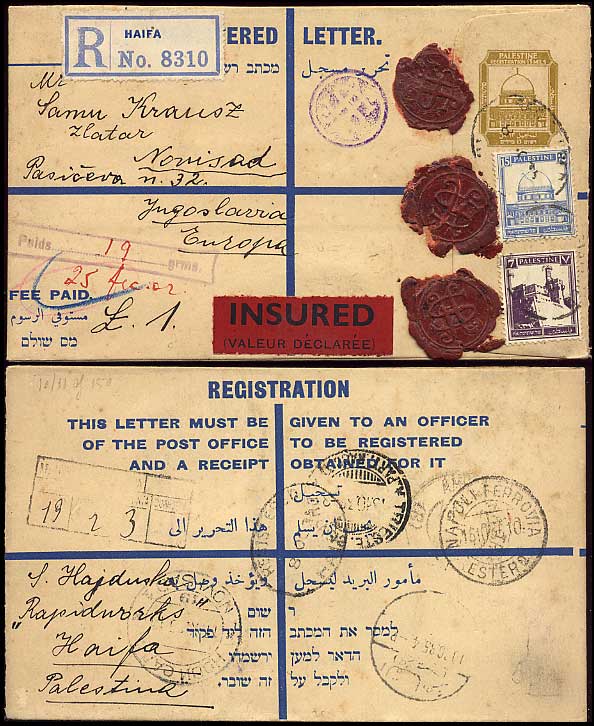 R HAIFA
No. 8310
ERED LETTER.
מכתב
تحرير مسجل
PALESTINE
REGISTRATION 13 MILS
Mr
Samu Krausz
Zlatar
Novisad
Pasićeva n. 32.
Jugoslavia
Europa
15 PALESTINE
7 PALESTINE
19
grms.
25 fr. or.
FEE PAID.
مستوفي الرسوم
מס שולם
£. 1.
INSURED
(VALEUR DÉCLARÉE)
REGISTRATION
THIS LETTER MUST BE GIVEN TO AN OFFICER
OF THE POST OFFICE TO BE REGISTERED
AND A RECEIPT OBTAINED FOR IT
تسجيل
19 2 3
هذا التحرير الى
يسلم
TRIESTE
NAPOLI FERROVIA
ESTERO
مأمور البريد ليسجل
ويؤخذ وصل به
S. Hajduska
"Rapidworks
Haifa
Palestina
רשום
הזה לידי פקיד
וירשמהו
זה שובר.
למסר את המכתב
הדאר למען
ולקבל על